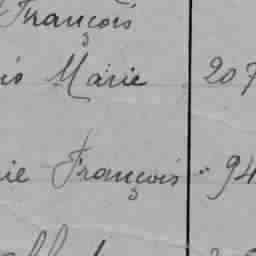 François
is Marie 207
ie François " 94